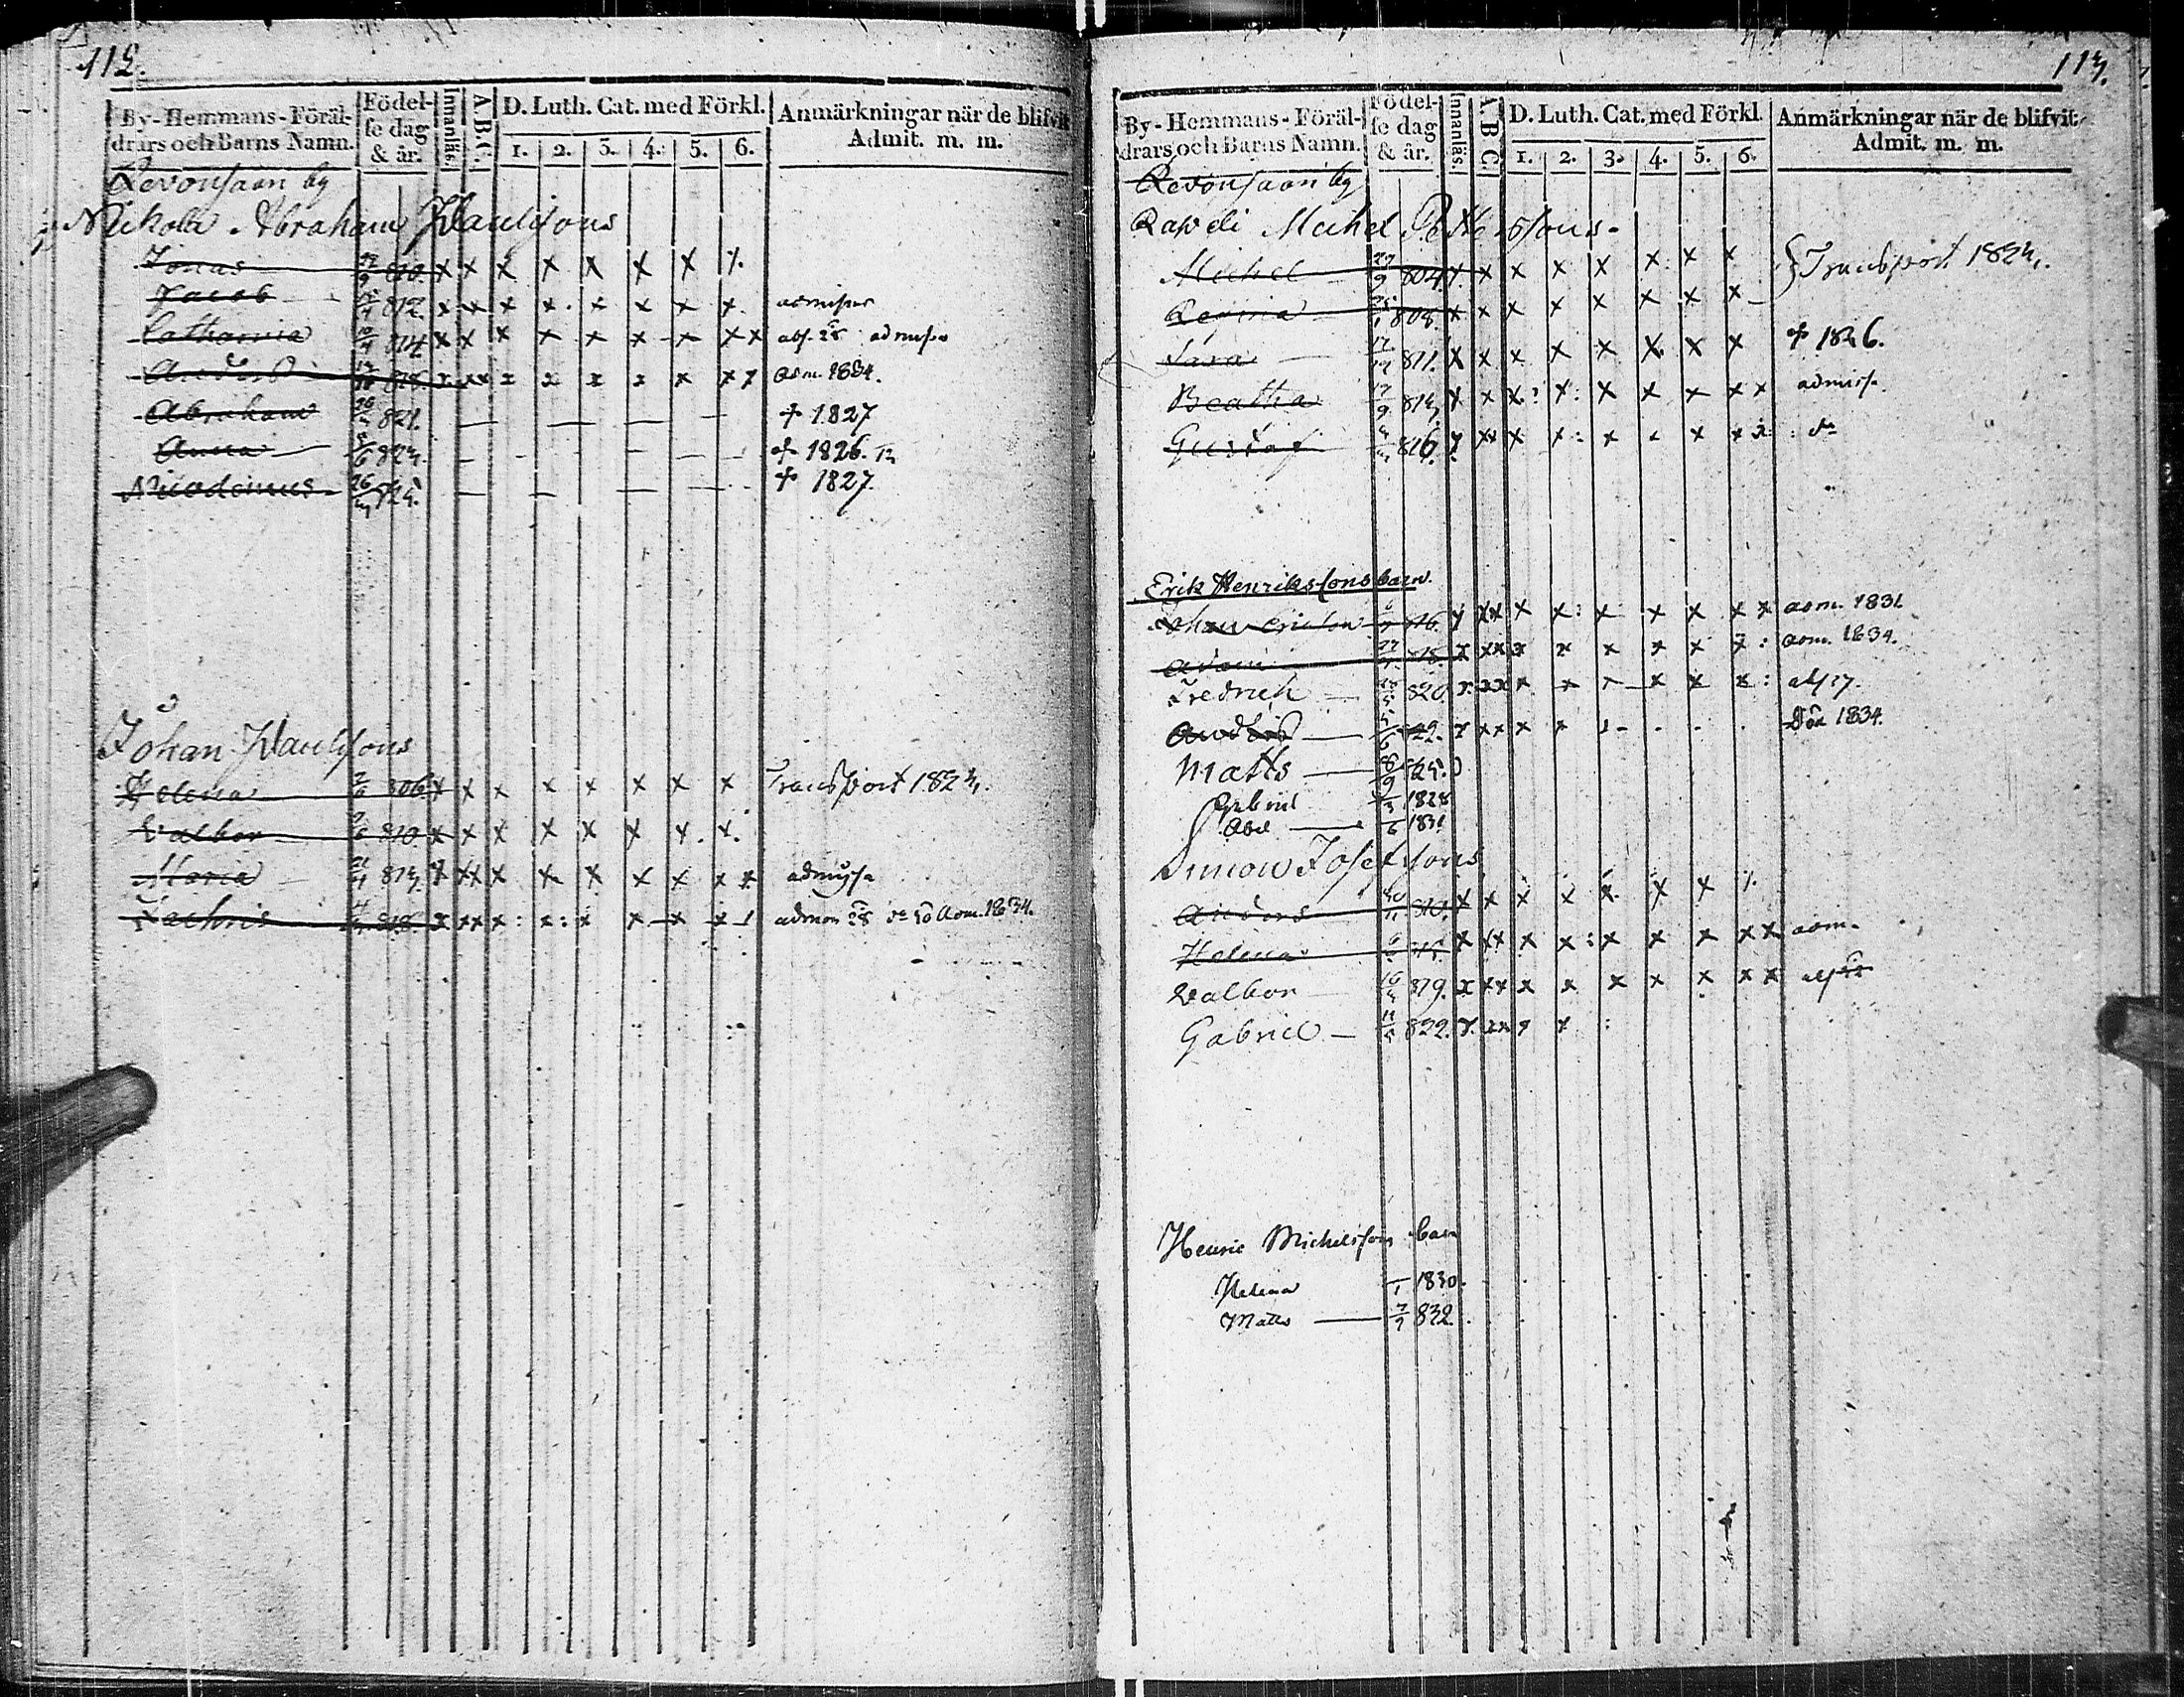 112.
By-Hemmans-Föräl-drars och Barns Namn. Födel-se dag & år. Innanläs. A.B.C. D. Luth. Cat. med Förkl. 1. 2. 3. 4. 5. 6. Anmärkningar när de blifvit Admit. m. m.
Revonsaari by
Nikola Abraham Paulssons
Jonas 9 810. x x x x x x x x
Jacob 4 812. x x x x x x x x admissus
Catharina 10/4 814 x x x x x x x x x abs. 28 admissa
Anders 818 x xx x x x x x x x adm. 1834.
Abraham 821. — — — — + 1827
Anna 6 823. — — — — + 1826.
Nicodemus 26 825. — — — — + 1827.
Johan Paulssons
Helena 806. x x x x x x x x Transport 1823.
Valbor 810 x x x x x x x x
Maria 21/4 813. x xx x x x x x x x admissa
Zachris 818 x xx x: x: x x x x admon 28 Adm. 1834.
113.
By-Hemmans-Föräl-drars och Barns Namn. Födel-se dag & år. Innanläs. A B C. D. Luth. Cat. med Förkl. 1. 2. 3. 4. 5. 6. Anmärkningar när de blifvit Admit. m. m.
Revonsaari by
Rapeli Michel Pettersons.
Michel 9 804. x x x x x x x x } Transport 1823.
Regina 1 808. x x x x x x x x
Sara 811. x x x x x x x x + 1826.
Beatha 17/9 813, x x x: x: x x x x x admissa
Gustaf 816. x xx x x: x x x x x: do
Erik Henrikssons barn.
Johan Ericson 816. x xx x x: x x x x x adm. 1831
Adam 818. x xx x x x x x x: adm. 1834.
Fredrich — 820. x xx x x x x x x: abs 37.
Anders — 5/6 822. x xx x x död 1834.
Matts — 8/9 825.
Gabriel 3 1828
Abel — 6 1831
Simon Josefssons
Anders 30/11 810. x x x x x x x x
Helena 815. x xx x x: x x x x x adm.
Valbor — 819. x xx x x x x x x x abs
Gabriel — 11/5 822. x. xx x x :
Henric Michelsson barn
Helena 1 1830.
Matts — 7/7 832.